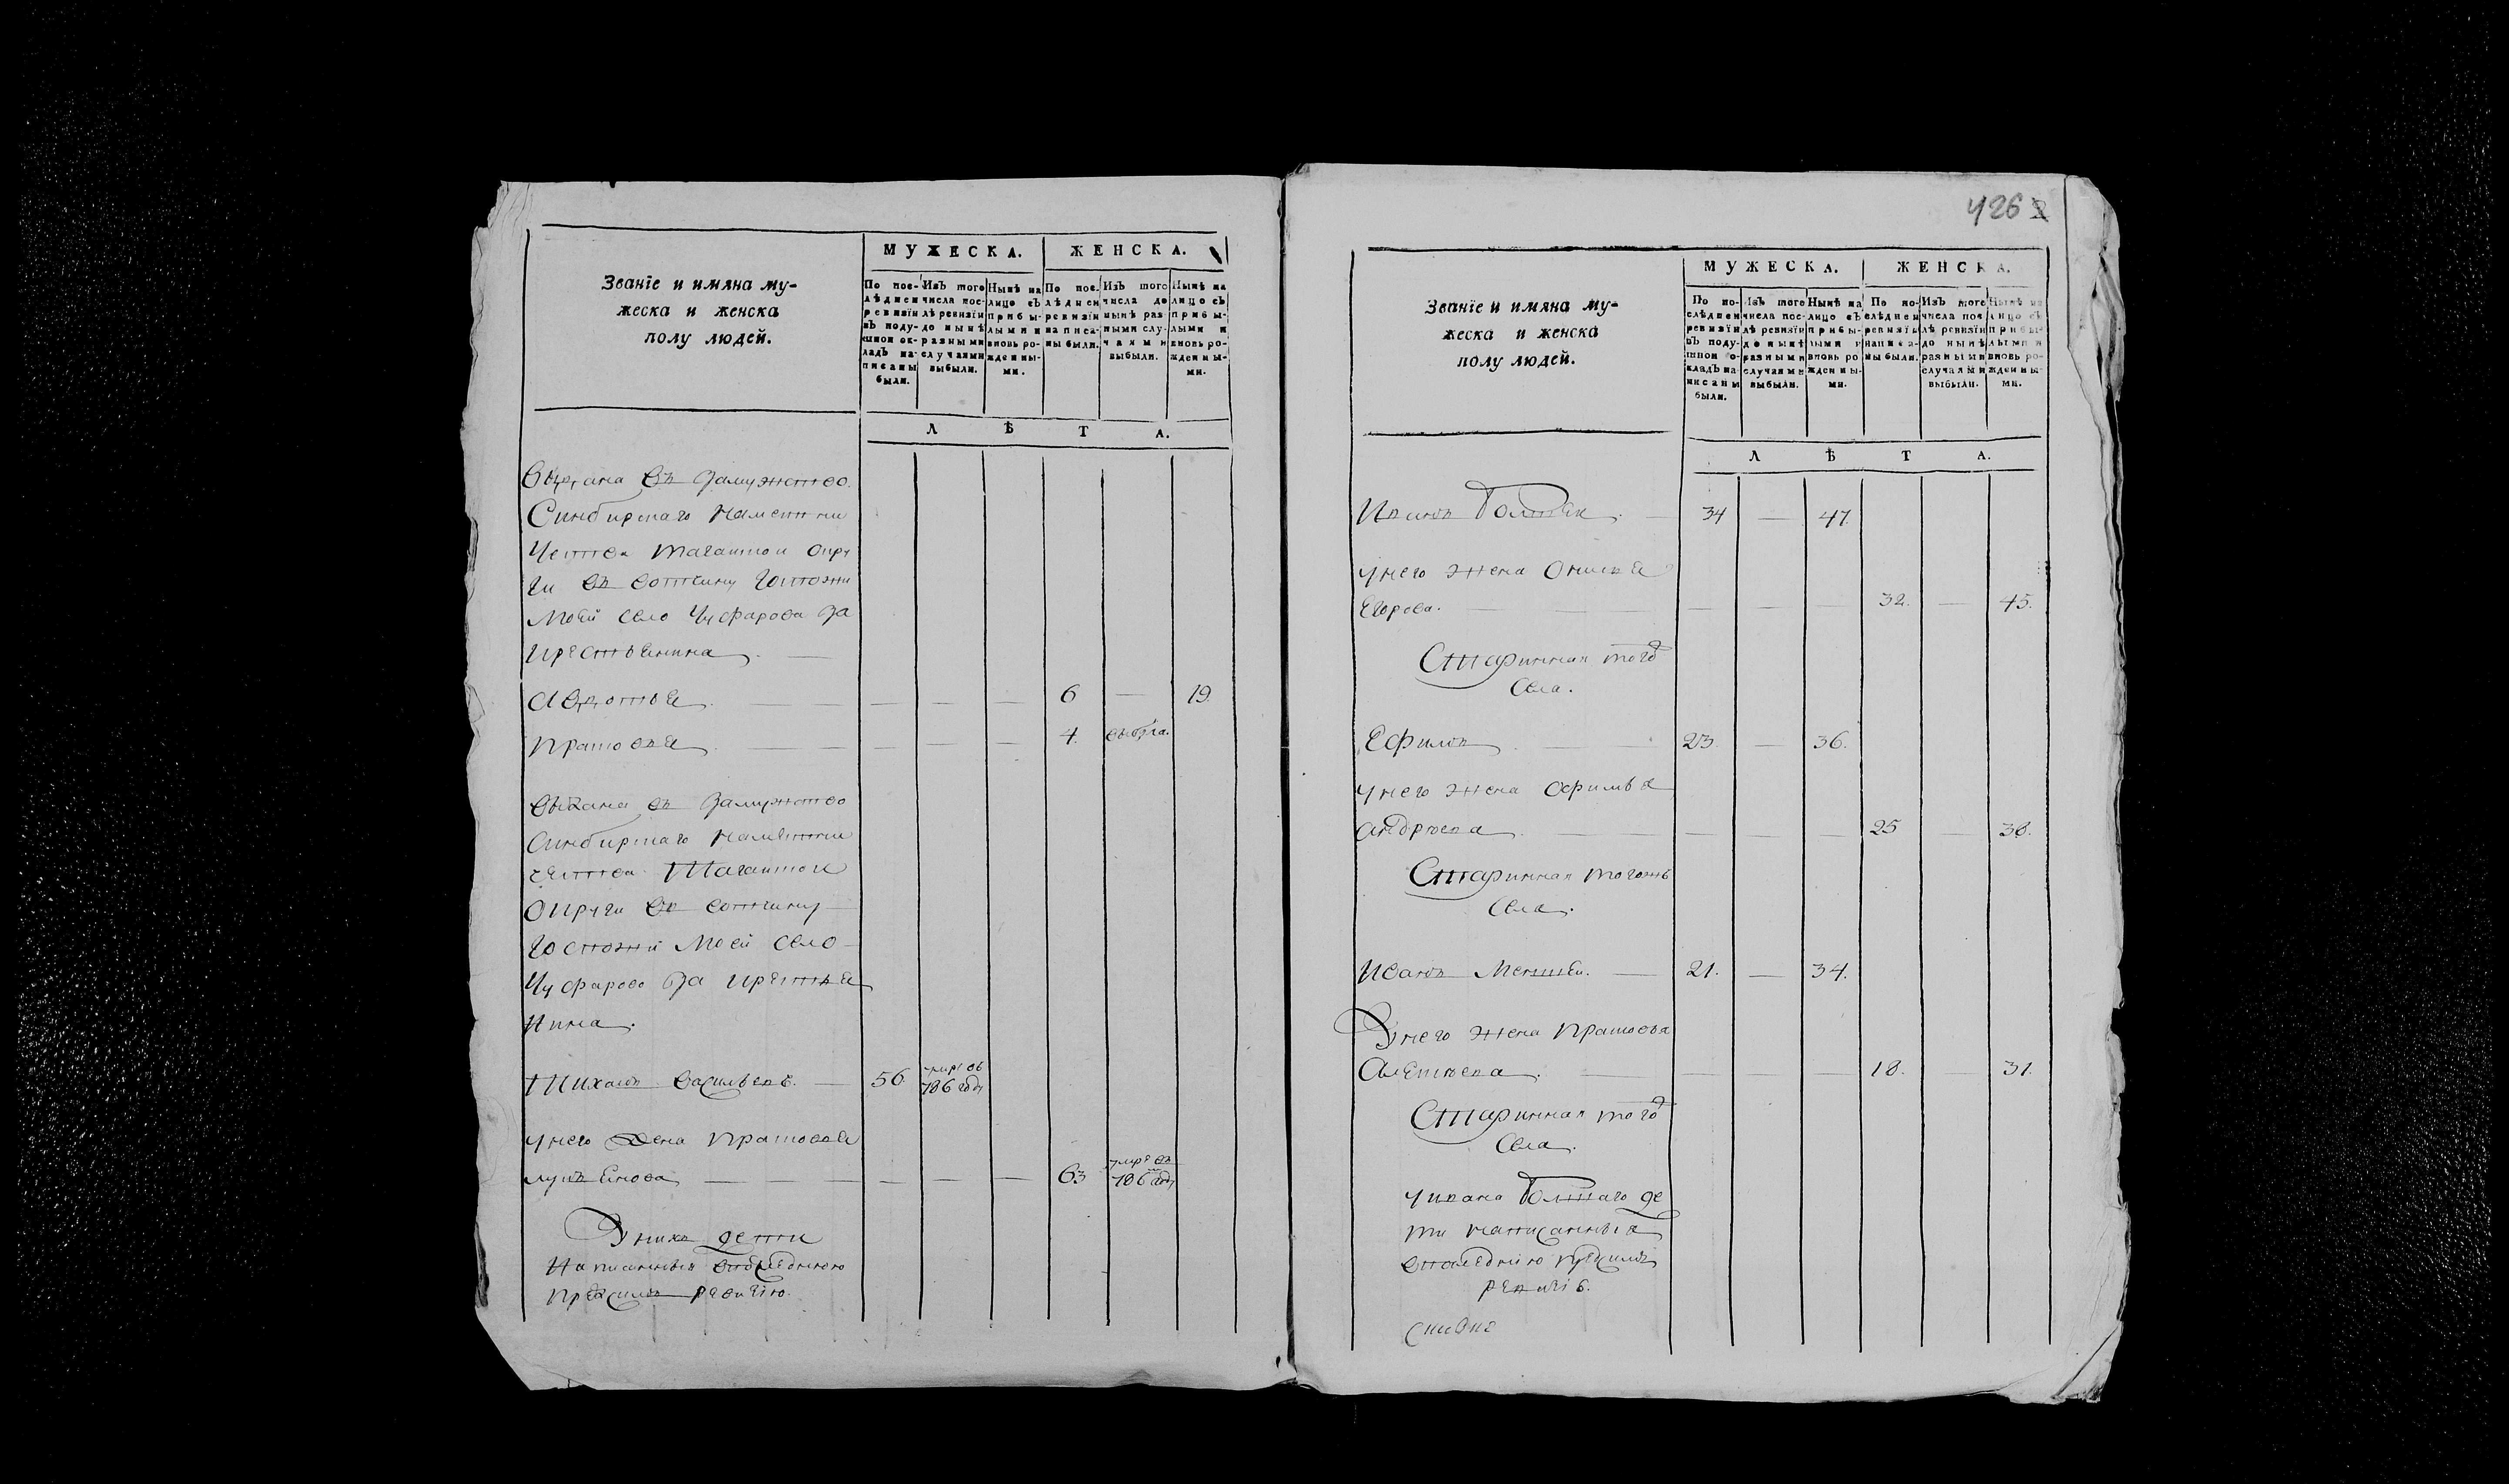 МУЖЕСКА. ЖЕНСКА.
Званїе и имяна му-
жеска и женска
полу людей.
По пос-
лѣдней
ревизїи
въ поду-
шной ок-
ладъ на-
писаны
были.
Изъ того
числа пос-
лѣ ревизїи
до нынѣ
разными
случаями
выбыли.
Нынѣ на
лицо съ
прибы-
лыми и
вновь ро-
жденны-
ми.
По пос-
лѣдней
ревизїи
написа-
ны были.
Изъ того
числа до
нынѣ раз
ными слу-
чаями
выбыли.
Нынѣ на
лицо съ
прибы-
лыми и
вновь ро-
жденны-
ми.
Л Ѣ Т А.
выдана въ замужство
Синбирскаго намѣстни
чества Тагайской окру
ги въ вотчину госпожи
моей село Чуфарова за
крестьянина
Авдотья 6 19
Прасковья 4. выбыла.
выдана въ замужство
Синбирскаго намѣстни
чества Тагайской
округи въ вотчину
госпожи моей село
Чуфарово за крестья
нина.
Михайла Васильевъ. 56. умре въ
786 году
у него жена Прасковья
63 умре въ
786 году
У нихъ дети
написанныя впоследнюю
предсимъ ревизїю.
426
МУЖЕСКА. ЖЕНСКА.
Званїе и имяна му-
жеска и женска
полу людей.
По по-
слѣдней
ревизїи
въ поду-
шной о-
кладъ на-
писаны
были.
Изъ того
числа пос-
лѣ ревизїи
до нынѣ
разными
случаями
выбыли.
Нынѣ на
лицо съ
прибы-
лыми и
вновь ро
жденны-
ми.
По по-
слѣдней
ревизїи
написа-
ны были.
Изъ того
числа пос
лѣ ревизїи
до нынѣ
разными
случаями
выбыли.
Нынѣ на
лицо съ
прибы-
лыми и
вновь ро-
жденны-
ми.
Л Ѣ Т А.
Иванъ Большей. 34 47.
у него жена
Егорова. 32. 45.
Старинная того
села.
Ефимъ 23. 36.
у него жена Афимья
Андреева 25 38.
Старинная тогожъ
села.
Иванъ Меншей. 21. 34.
У него жена Прасковья
Алексеева. 18. 31.
Старинная того
села.
у Ивана Большаго де
ти написанныя
впоследнюю предсимъ
ревизїю.